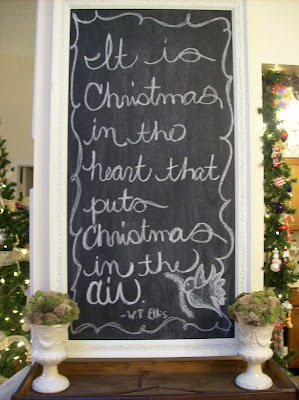 It is
Christmas
in the
heart that
puts
Christmas
in the
air.
-W.T. Ellis